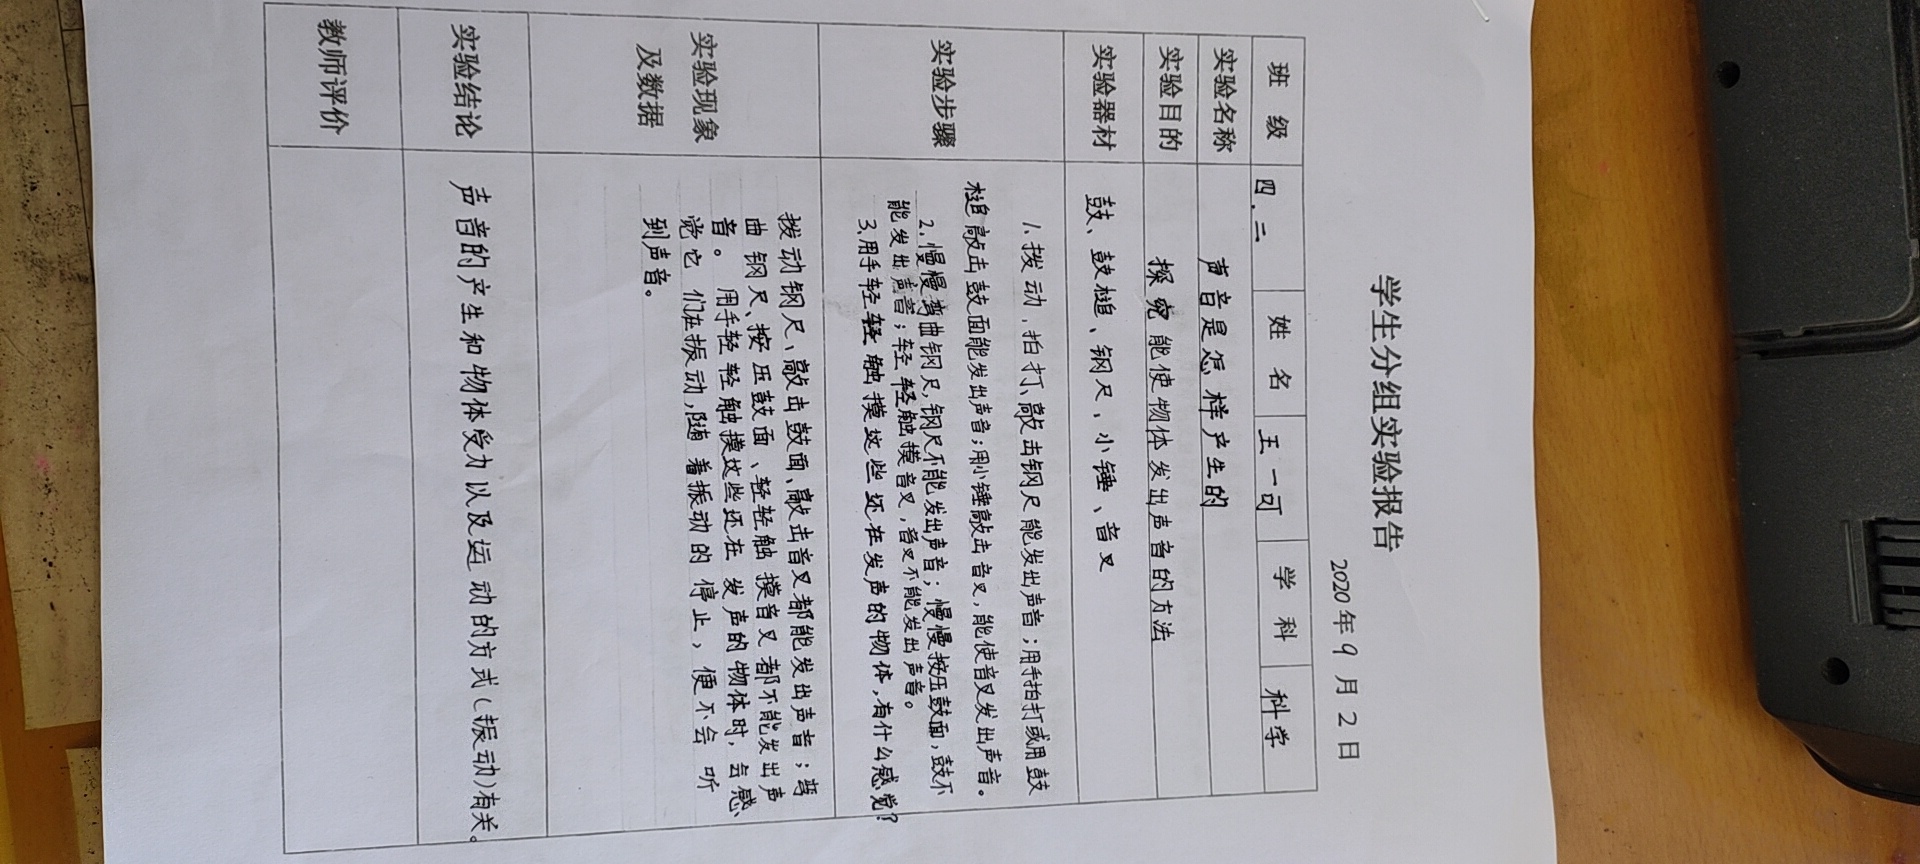 学生分组实验报告
2020年9月2日
班级 四.二 姓名 王一可 学科 科学
实验名称 声音是怎样产生的
实验目的 探究能使物体发出声音的方法
实验器材 鼓、鼓槌、钢尺、小锤、音叉
实验步骤
1.拨动、拍打、敲击钢尺能发出声音;用手拍打或用鼓
槌敲击鼓面能发出声音;用小锤敲击音叉,能使音叉发出声音。
2.慢慢弯曲钢尺,钢尺不能发出声音;慢慢按压鼓面,鼓不
能发出声音;轻轻触摸音叉,音叉不能发出声音。
3.用手轻轻触摸这些还在发声的物体,有什么感觉?
实验现象
及数据
拨动钢尺、敲击鼓面、敲击音叉都能发出声音;弯
曲钢尺、按压鼓面、轻轻触摸音叉都不能发出声
音。用手轻轻触摸这些还在发声的物体时,会感
觉它们在振动,随着振动的停止,便不会听
到声音。
实验结论 声音的产生和物体受力以及运动的方式(振动)有关。
教师评价